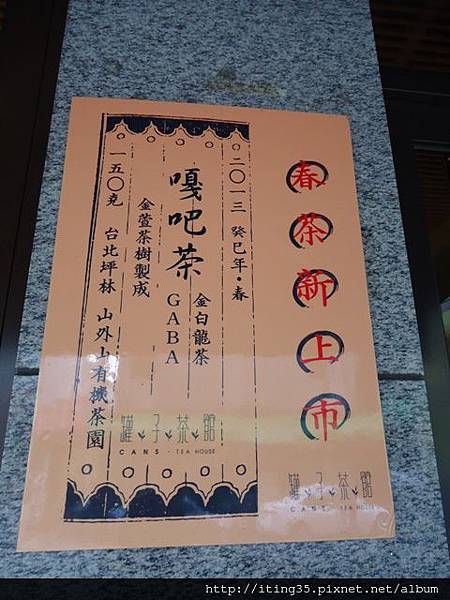 春茶新上市
二〇一三 癸巳年·春
金白龍茶
嘎吧茶 GABA
金萱茶樹製成
一五〇克 台北坪林 山外山有機茶園
罐子茶館
CANS · TEA HOUSE
罐子茶館
CANS · TEA HOUSE
http://iting35.pixnet.net/album